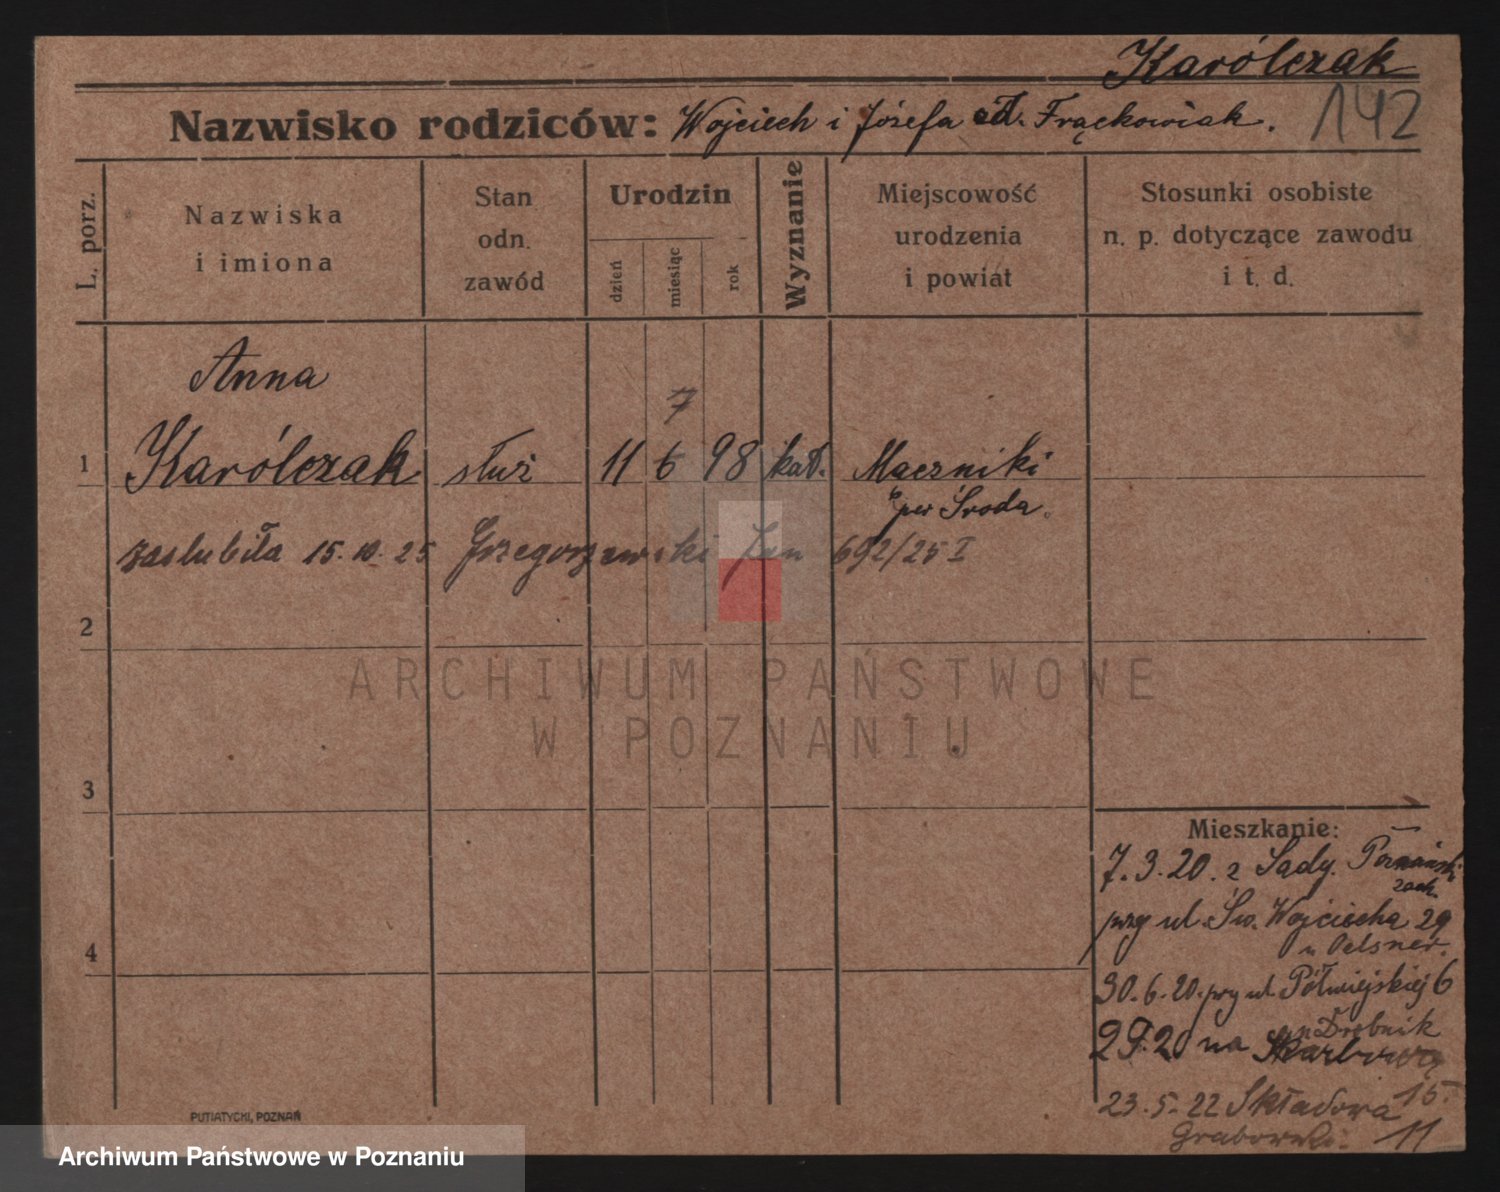 Karólczak
Nazwisko rodziców: Wojciech i Józefa Frąckowiak.
142
L. porz.
Nazwiska
i imiona
Stan
odn.
zawód
Urodzin
dzień
miesiąc
rok
Wyznanie
Miejscowość
urodzenia
i powiat
Stosunki osobiste
n. p. dotyczące zawodu
i t. d.
Anna
7
1 Karólczak służ 11 6 98 kat. Mączniki
pow Środa.
zaslubiła 15.10.25 Grzegorzewski Jan 692/25 I
2
ARCHIWUM PAŃSTWOWE
W POZNANIU
3
Mieszkanie:
7.3.20. z Sady.
przy ul. Św. Wojciecha 29
u Oelsner.
4
30.6.20. przy ul. Półwiejskiej 6
u Drobnik
na
23.5.22 Składowa 15.
Grabowski. 11
PUTIATYCKI, POZNAŃ
Archiwum Państwowe w Poznaniu